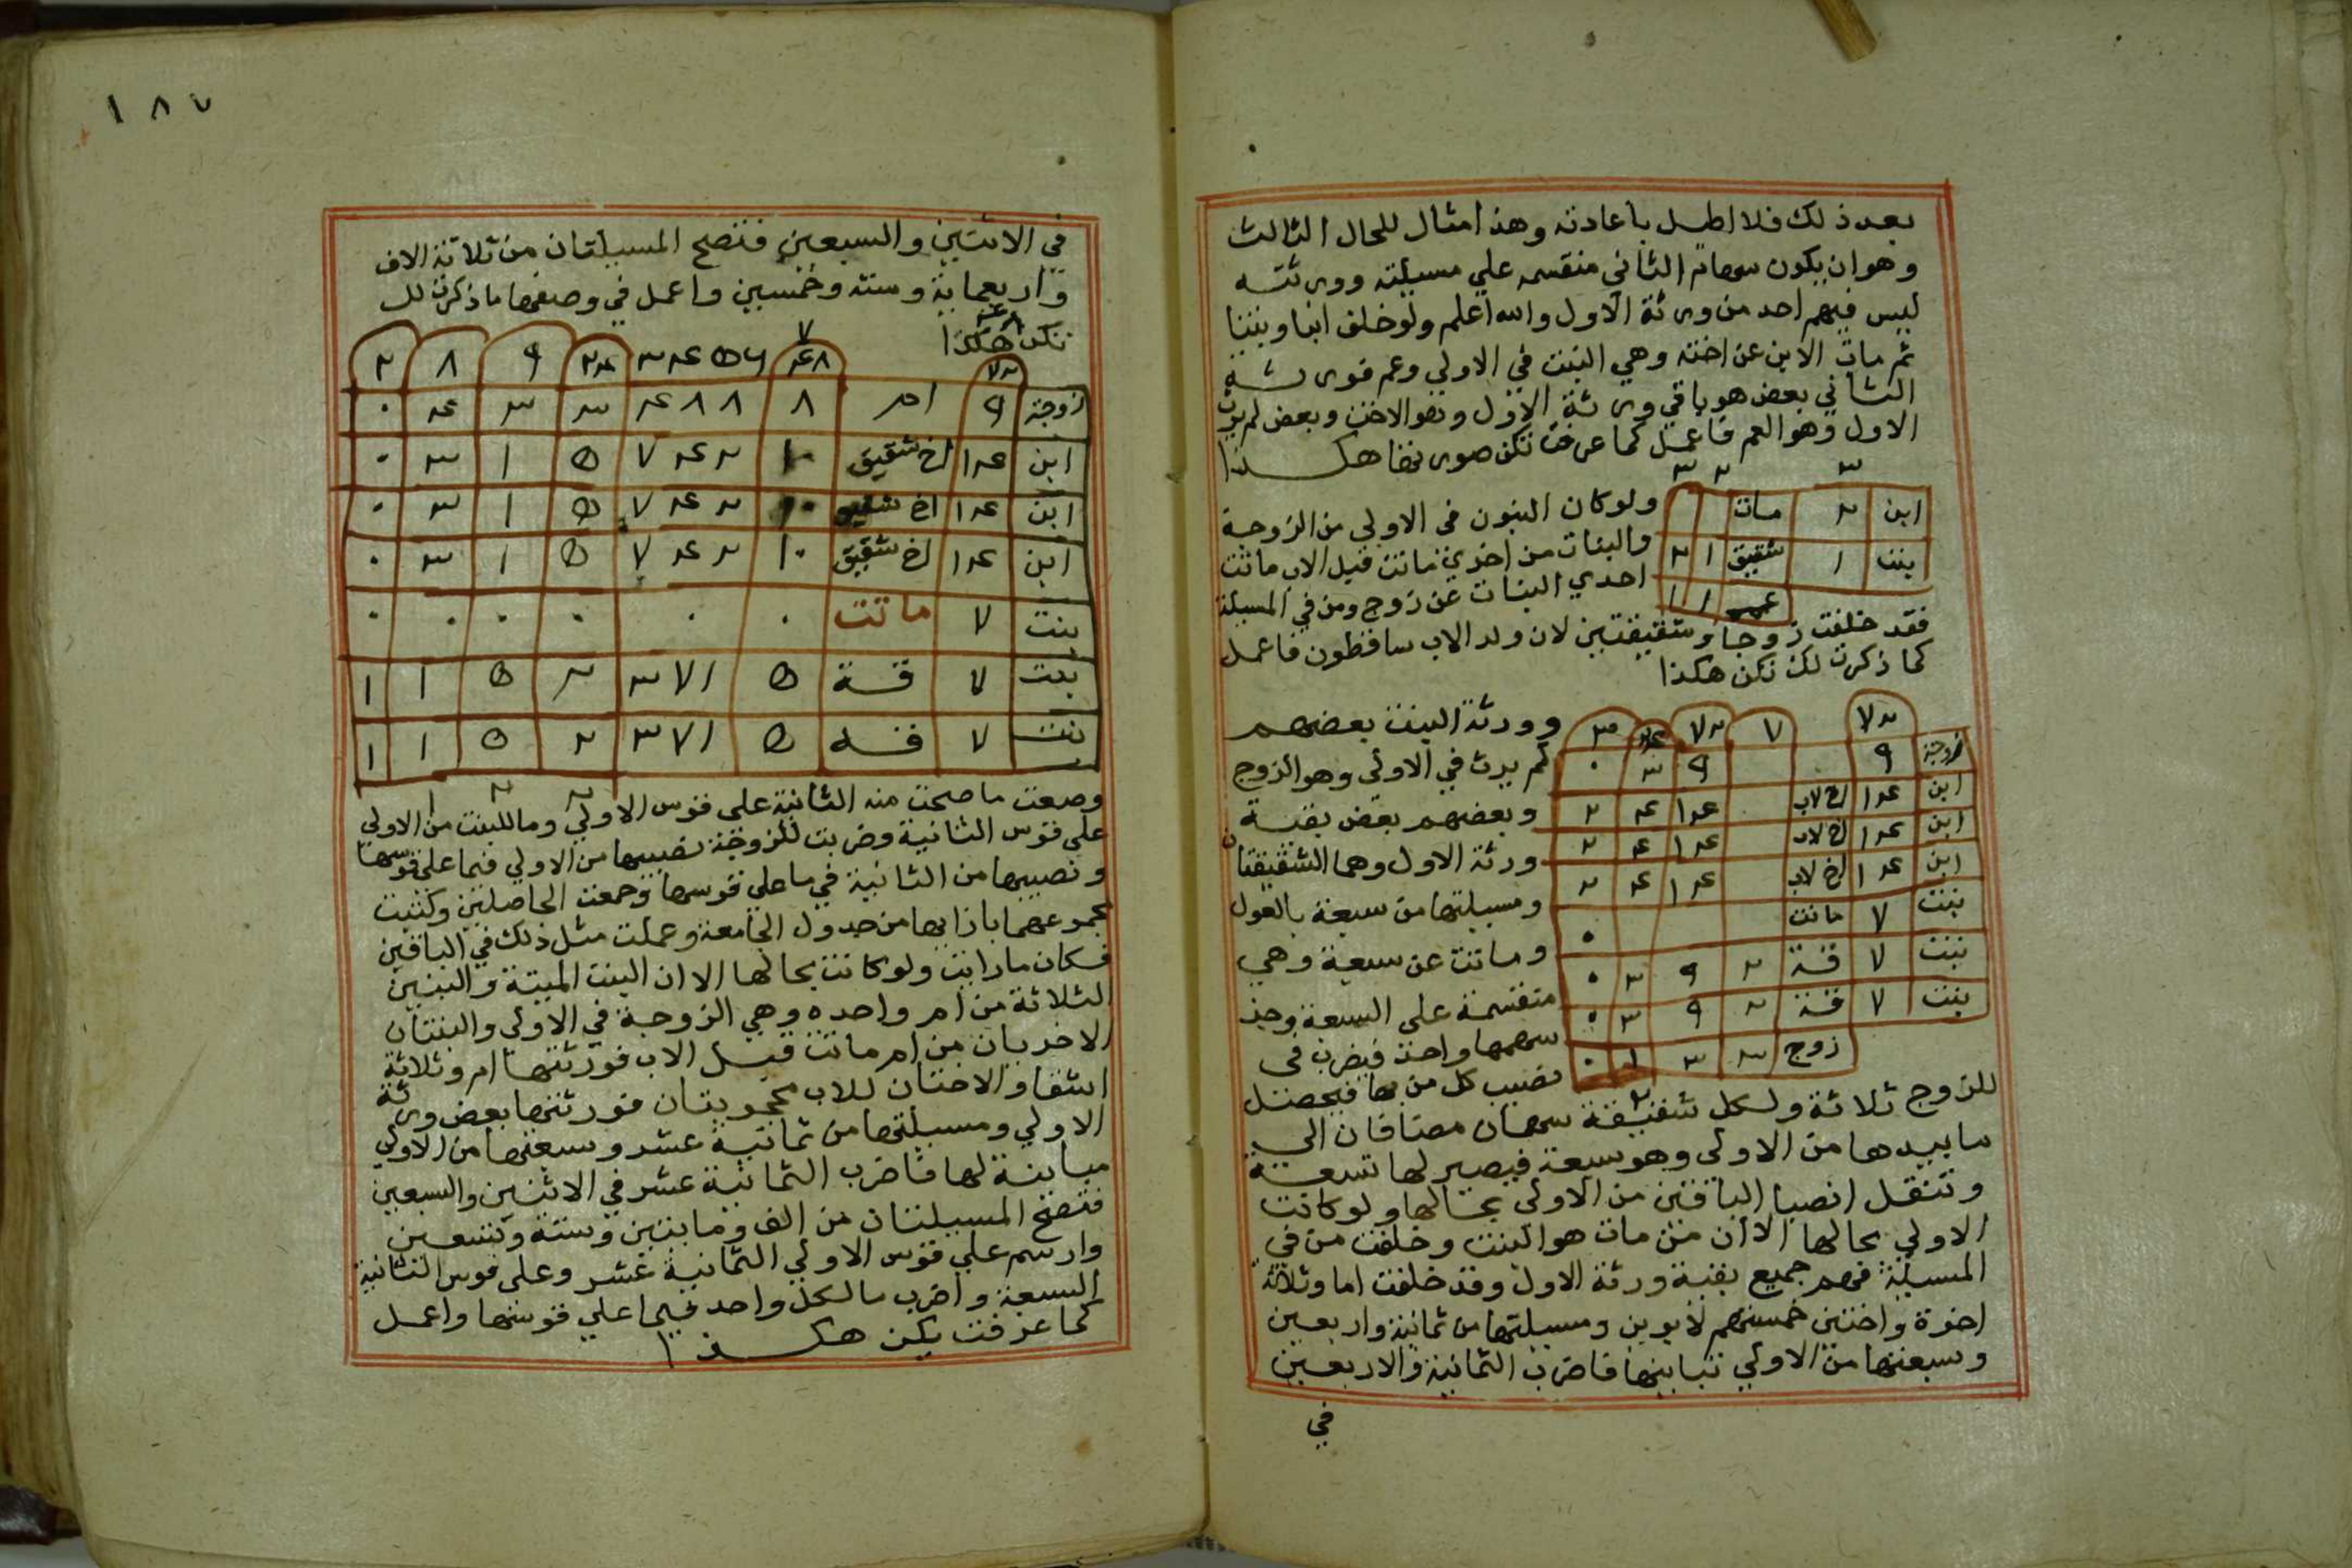 بعد ذلك فلا اطل باعادته وهذا مثال للحال الثالث
وهو ان يكون سهام الثاني منقسمه علي مسيلته وورثته
ليس فيهم احد من ورثة الاول والله اعلم ولو خلف ابنا وبنتا
ثم مات الابن عن اخته وهي البنت في الاولي وعم فورثة
الثاني بعض هو باقي ورثة الاول وهو الاخت وبعض لم يرث
الاول وهو العم فاعمل كما عرفت تكن صورتها هكذا
٣ ٢ ٣
ابن ٢ مات
بنت ١ شقيق ١ ٢
عم ١ ١
ولو كان البنون في الاولي من الزوجة
والبنات من اخري ماتت قبل الاب ماتت
احدي البنات عن زوج ومن في المسيلة
فقد خلفت زوجا وشقيقتين لان ولد الاب ساقطون فاعمل
كما ذكرت لك تكن هكذا
٧٢ ٧ ٧٢ ٢٤ ٣
زوجة ٩ ٩ ٣ ٠
ابن ١٤ اخ لاب ١٤ ٤ ٢
ابن ١٤ اخ لاب ١٤ ٤ ٢
ابن ١٤ اخ لاب ١٤ ٤ ٢
بنت ٧ ماتت ٠
بنت ٧ قة ٢ ٩ ٣ ٠
بنت ٧ قة ٢ ٩ ٣ ٠
زوج ٣ ٣ ١ ٠
وورثة البنت بعضهم
لم يرث في الاولي وهو الزوج
وبعضهم بعض بقية
ورثة الاول وهما الشقيقتان
ومسيلتها من سبعة بالعول
وماتت عن سبعة وهي
منقسمة علي السبعة وجز
سهمها واحد فيضرب في
نصيب كل من بها فيحصل
للزوج ثلاثة ولكل شقيقة سهمان مضافان الي
ما بيدها من الاولي وهو سبعة فيصير لها تسعة
وتنقل انصبا الباقين من الاولي بحالها ولو كانت
الاولي بحالها الا ان من مات هو البنت وخلفت من في
المسيلة فهم جميع بقية ورثة الاول وقد خلفت اما وثلاثة
اخوة واختين خمستهم لابوين ومسيلتها من ثمانية واربعين
وسبعتها من الاولي تباينها فاضرب الثمانية والاربعين
في
١٨٧
في الاثنين والسبعين فتصح المسيلتان من ثلاثة الاف
واربعماية وستة وخمسين واعمل في وضعها ما ذكرت لك
تكن هكذا
٤٨ ٧
٧٢ ٤٨ ٣٤٥٦ ٢٤ ٩ ٨ ٢
زوجة ٩ ام ٨ ٤٨٨ ٣ ٣ ٤ ٠
ابن ١٤ اخ شقيق ١٠ ٧٤٢ ٥ ١ ٣ ٠
ابن ١٤ اخ شقيق ١٠ ٧٤٢ ٥ ١ ٣ ٠
ابن ١٤ اخ شقيق ١٠ ٧٤٢ ٥ ١ ٣ ٠
بنت ٧ ماتت ٠ ٠ ٠ ٠ ٠ ٠
بنت ٧ قة ٥ ٣٧١ ٢ ٥ ١ ١
بنت ٧ قة ٥ ٣٧١ ٢ ٥ ١ ١
وضعت ما صحت منه الثانية علي قوس الاولي وما للبنت من الاولي
علي قوس الثانية وضربت للزوجة نصيبها من الاولي فيما علي قوسها
ونصيبها من الثانية في ما علي قوسها وجمعت الحاصلين وكتبت
مجموعهما بازايها من جدول الجامعة وعملت مثل ذلك في الباقين
فكان ما رايت ولو كانت بحالها الا ان البنت الميتة والبنين
الثلاثة من ام واحده وهي الزوجة في الاولي والبنتان
الاخريان من ام ماتت قبل الاب فورثتها ام وثلاثة
اشقا والاختان للاب محجوبتان فورثتها بعض ورثة
الاولي ومسيلتها من ثمانية عشر وسبعتها من الاولي
مباينة لها فاضرب الثمانية عشر في الاثنين والسبعين
فتصح المسيلتان من الف ومايتين وستة وتسعين
وارسم علي قوس الاولي الثمانية عشر وعلي قوس الثانية
السبعة واضرب ما لكل واحد فيما علي قوسها واعمل
كما عرفت يكن هكذا